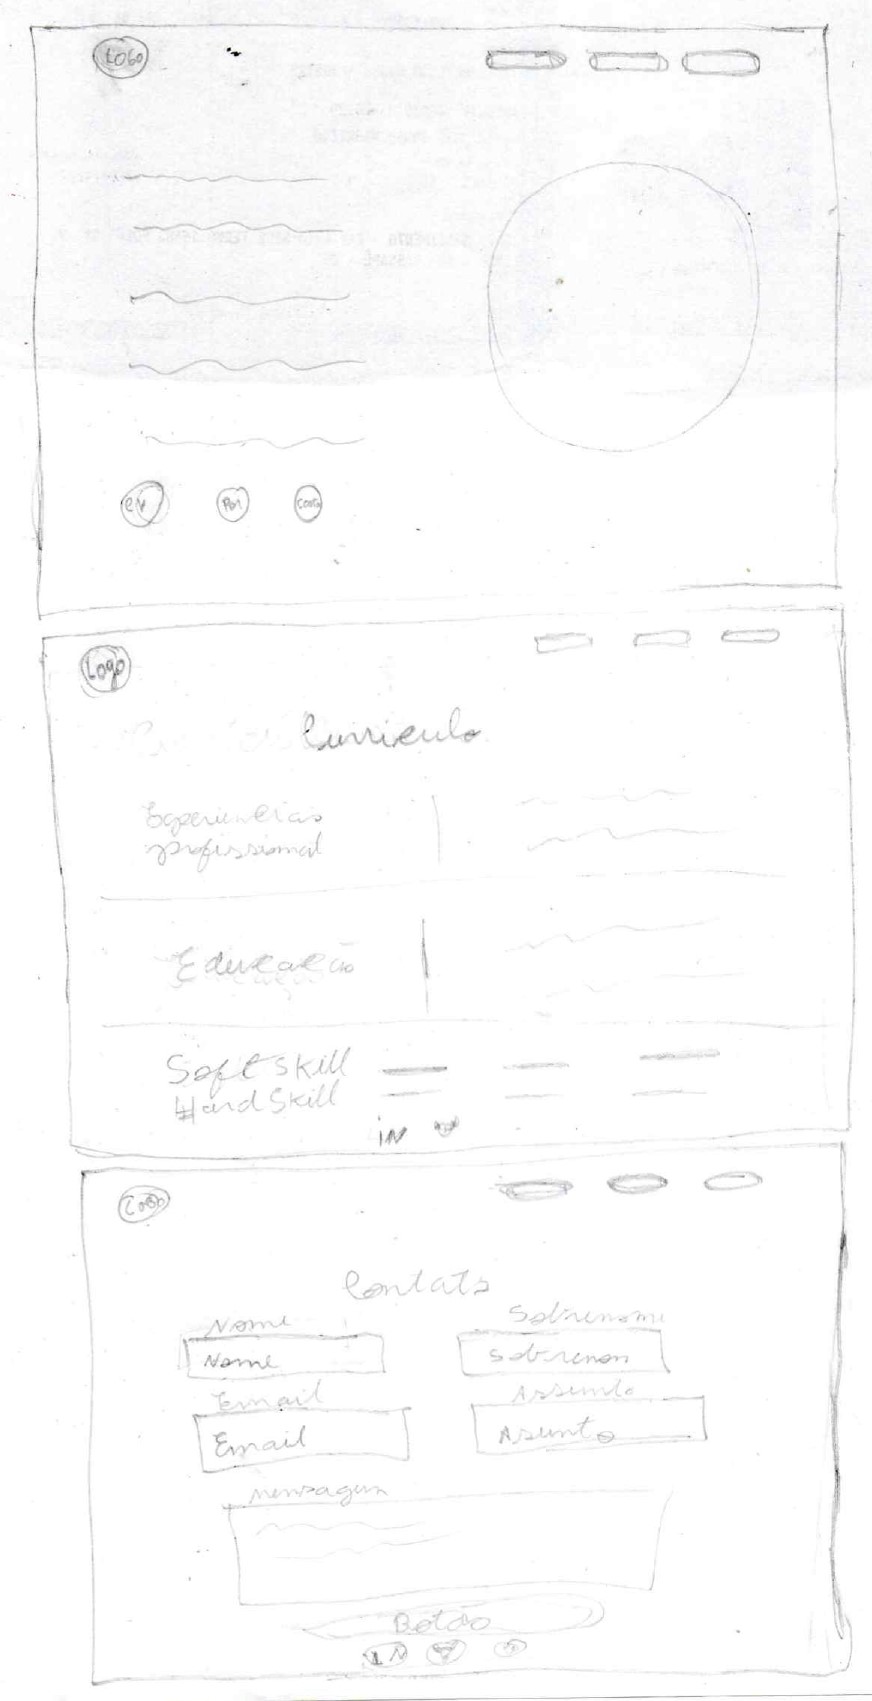 LOGO
CV
Por
Logo
Curriculo
Experiencias
profissional
Educação
Soft Skill
Hard Skill
iN
Logo
Contato
Nome Sobrenome
Nome Sobrenom
Email Assunto
Email Asunto
mensagem
Botão
IN